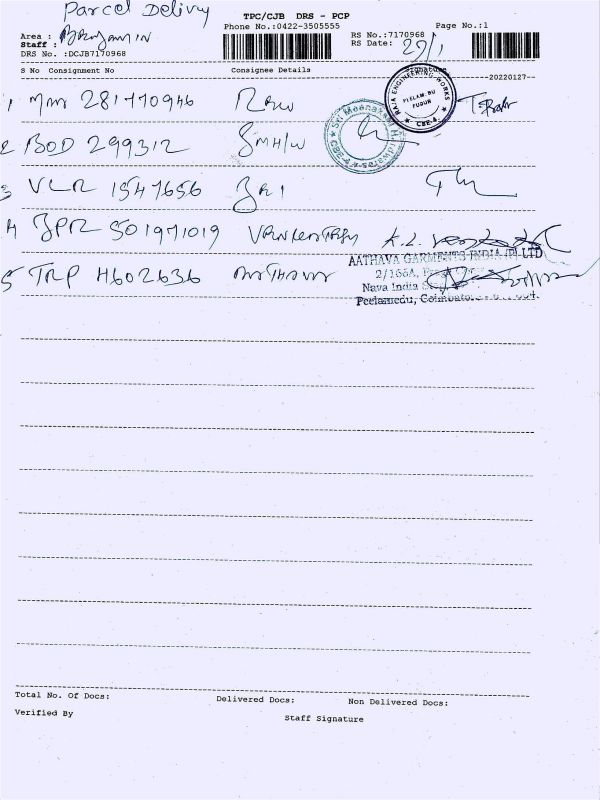 Parcel Delivy
TPC/CJB DRS - PCP
Phone No.:0422-3505555
Page No.:1
Area : Benjamin
RS No.:7170968
Staff :
RS Date: 29/1
DRS No. :DCJB7170968
S No Consignment No Consignee Details Signature
-20220127-
RAJA ENGINEERING WORKS
PEELAM. DU
PUDUR
CBE-4.
1 281770946
Sri Meenakshi Hardwares
2 BOD 299312
3 VLR 1547656 SRI
4 JPR 501971019
5 TRP 4602636
AATHAVA GARMENTS INDIA (P) LTD
2/166A,
Nava India
Peelamedu,
Total No. Of Docs: Delivered Docs: Non Delivered Docs:
Verified By Staff Signature